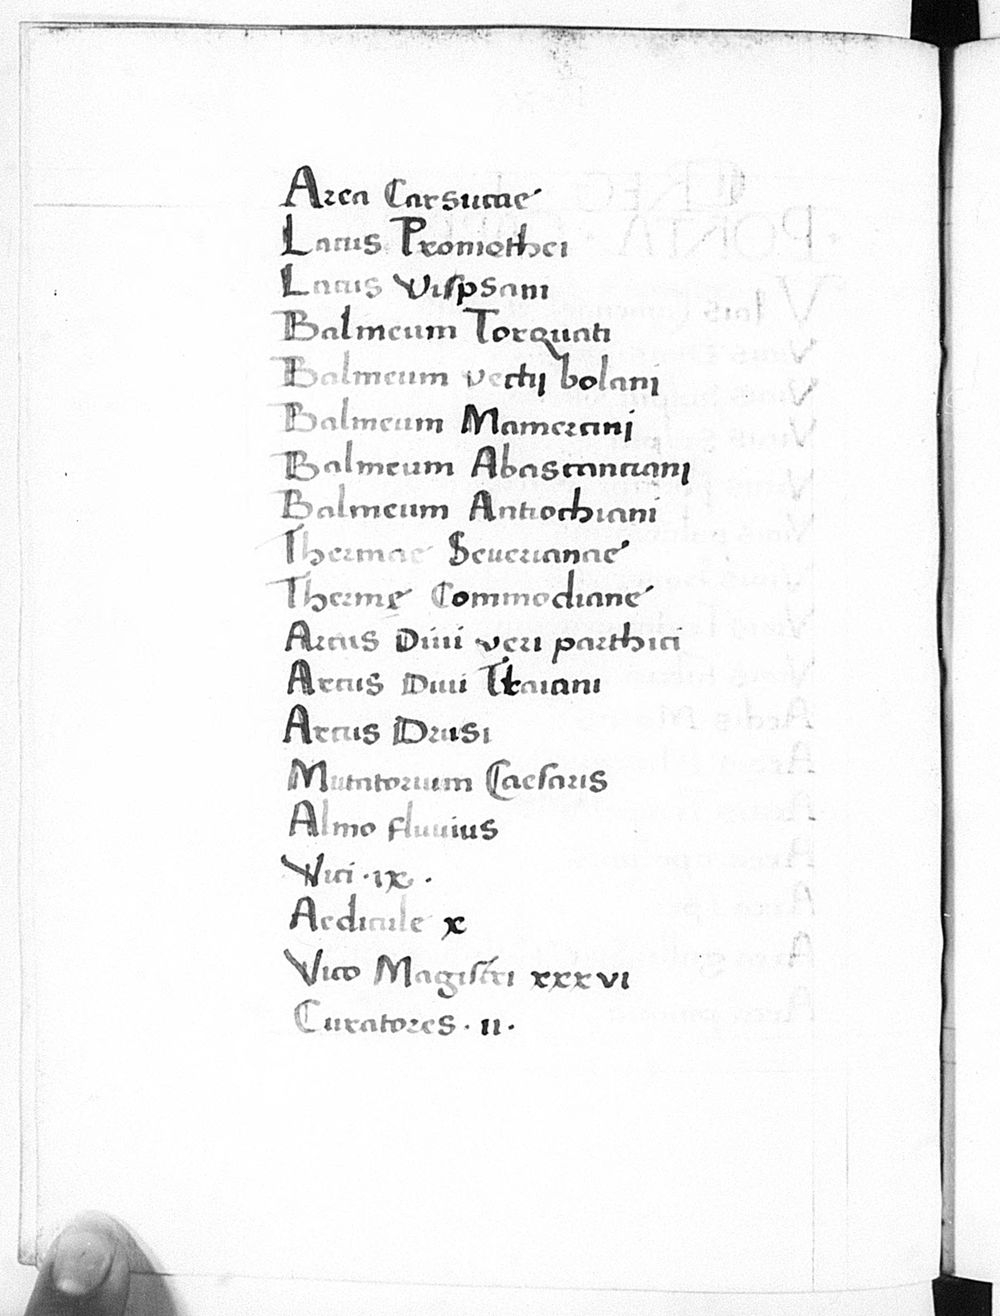 Area Carsucae
Lacus Promethei
Lacus Vispsani
Balineum Torquati
Balineum vectij bolani
Balineum Mamertini
Balineum Abascantiani
Balineum Antiochiani
Thermae Seuerianae
Therme Commodiane
Arcus Diui veri parthici
Arcus Diui Traiani
Arcus Drusi
Mutatorium Caesaris
Almo fluuius
Vici · ix ·
Aedicule x
Vico Magistri xxxvi
Curatores · ii ·